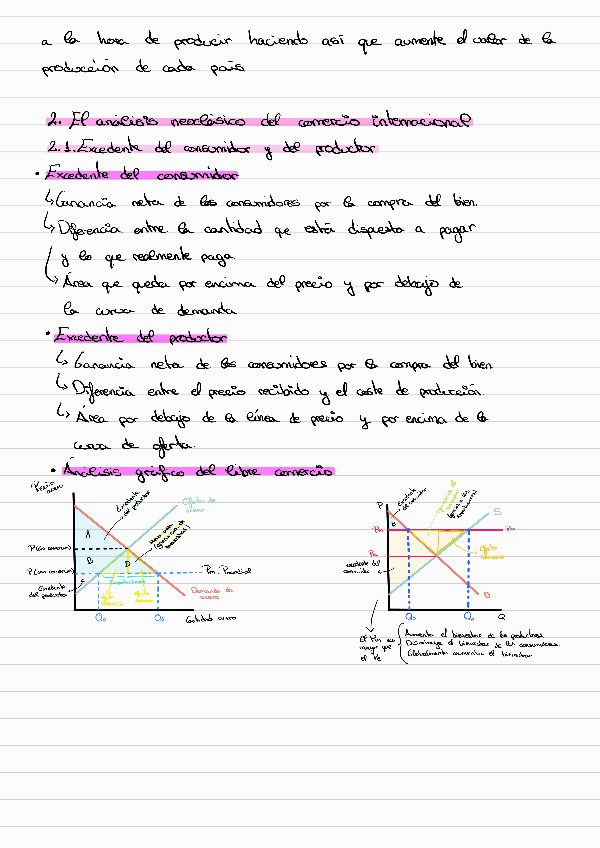 a la hora de producir haciendo así que aumente el valor de la
producción de cada país
2. El análisis neoclásico del comercio internacional
2.1. Excedente del consumidor y del productor
• Excedente del consumidor
↳ Ganancia neta de los consumidores por la compra del bien.
↳ Diferencia entre la cantidad que está dispuesto a pagar
y lo que realmente paga
↳ Área que queda por encima del precio y por debajo de
la curva de demanda
• Excedente del productor
↳ Ganancia neta de los consumidores por la compra del bien
↳ Diferencia entre el precio recibido y el coste de producción.
↳ Área por debajo de la línea de precio y por encima de la
curva de oferta.
• Análisis gráfico del libre comercio
Precio
acero
Excedente
del productor
Oferta de
acero
A
B
C
D
P (sin comercio)
P (con comercio)
Pm: P mundial
Excedente
del productor
Demanda de
acero
Qo
Qd
Cantidad acero
P
S
Pm
Pm
Pe
D
Qd
Qo
Q
El Pm es
mayor que
el Pe
Aumenta el bienestar de los productores
Disminuye el bienestar de los consumidores.
Globalmente aumenta el bienestar